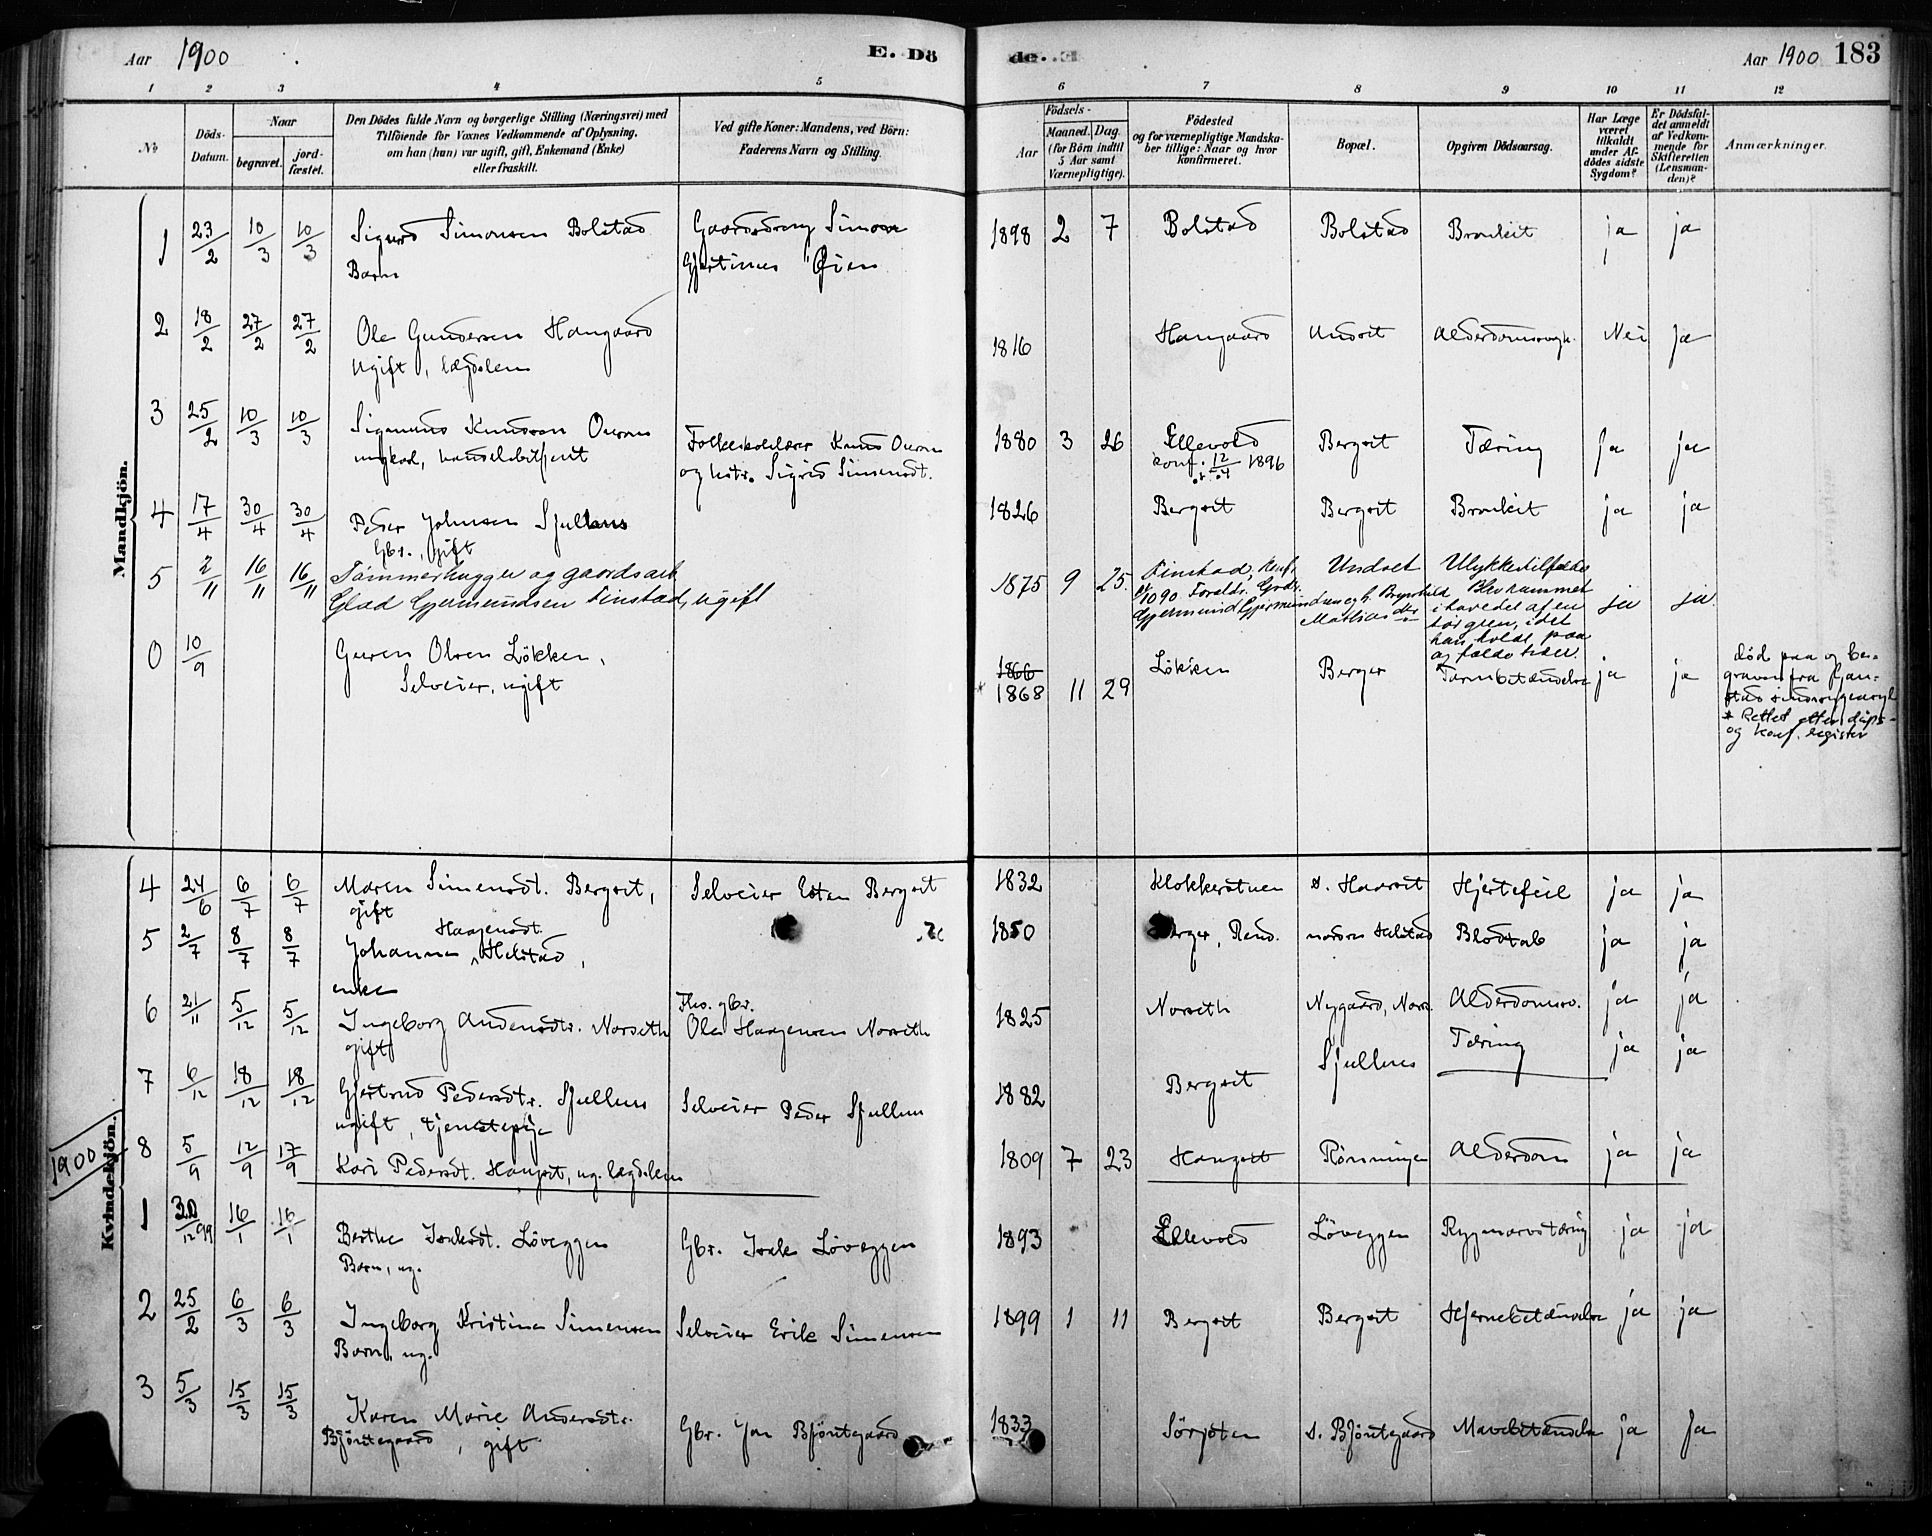 Aar 1900
E. Dö
de. E
Aar 1900 183
1 2 3 4 5 6 7 8 9 10 11 12
No
Döds-
Datum.
Naar
begravet.
jord-
fæstet.
Den Dödes fulde Navn og borgerlige Stilling (Næringsvei) med
Tilföiende for Voxnes Vedkommende af Oplysning,
om han (hun) var ugift, gift, Enkemand (Enke)
eller fraskilt.
Ved gifte Koner: Mandens, ved Börn:
Faderens Navn og Stilling.
Födsels-
Aar
Maaned. Dag.
(for Börn indtil
5 Aar samt
Værnepligtige).
Födested
og for værnepligtige Mandska-
ber tillige: Naar og hvor
konfirmeret.
Bopæl.
Opgiven Dödsaarsag.
Har Læge
været
tilkaldt
under Af-
dödes sidste
Sygdom?
Er Dödsfal-
det anmeldt
af Vedkom-
mende for
Skifteretten
(Lensman-
den)?
Anmærkninger.
Mandkjön.
1 23/2 10/3 10/3 Sigurd Simonsen Bolstad Gaardsdreng Simon 1898 2 7 Bolstad Bolstad Bronkit ja ja
Barn Gjertinus Öien
2 18/2 27/2 27/2 Ole Gundersen Haugaard 1816 Haugaard Undset Alderdomssvagh. Nei Ja
Ugift, lægdslem
3 25/2 10/3 10/3 Sigmund Knudsen Ouren Folkeskolelærer Knud Ouren 1880 3 26 Ellevold Bergset Tæring Ja ja
ungkarl, handelsbetjent og hstr. Sigrid Simensdt. konf. 12/04 1896
4 17/4 30/4 30/4 Peder Johnsen Sjullhus 1826 Bergset Bergset Bronkit ja ja
Gbr., gift
5 2/11 16/11 16/11 Tömmerhugger og gaardsarb. 1875 9 25. Finstad, Konf. Undset Ulykkestilfælde ja ja.
Glad Gjermundsen Finstad, ugift
1090 Foreldr. Grdr. Blev rammet
Gjermund Gjermundsen og h. Brynhild i hovedet af en
Mathias dtr tör gren, idet
han holdt paa
og fælde træer.
0 10/9 Guren Olsen Lökken, 1866 Lökken Berger Tarmbetændelse ja ja
Selveier, ugift * 1868 11 29
död paa og be-
graven fra Gjau-
stad sindssygeasyl
* Rettet etter dåps-
og konf. register
Kvindekjön.
4 24/6 6/7 6/7 Maren Simensdt. Bergset, Selveier Esten Bergset 1832 Klokkerstuen s. Haarset Hjertefeil ja ja
gift
5 2/7 8/7 8/7 Haagensdt. 1850 Berger, Rend. nordre Helstad Blodtab ja ja
Johanne Helstad,
enke
6 21/11 5/12 5/12 Ingeborg Andersdtr. Norseth Fhv. gbr. 1825 Norseth Nygaard, Nors. Alderdomssv. ja ja
gift Ole Haagensen Norseth
7 6/12 18/12 18/12 Gjertrud Pedersdtr. Sjullhus Selveier Peder Sjullhus 1882 Bergset Sjullhus Tæring ja ja
ugift, tjenestepige
8 5/9 12/9 17/9 Kari Pedersdt. Haugset, ug. lægdslem 1809 7 23 Haugset Rönningen Alderdom ja ja
1900
1 30/12 99 16/1 16/1 Berthe Isaksdt. Löveggen Gbr. Isak Löveggen 1893 Ellevold Löveggen Rygmarvstæring ja ja
Barn, ug.
2 25/2 6/3 6/3 Ingeborg Kristine Simensen Selveier Erik Simensen 1899 1 11 Bergset Bergset Hjernebetændelse ja ja
Barn, ug.
3 5/3 15/3 15/3 Karen Marie Andersdtr. Gbr. Jon Bjöntegaard 1833 Sörjoten s. Bjöntegaard Mavebetændelse ja Ja
Bjöntegaard, gift